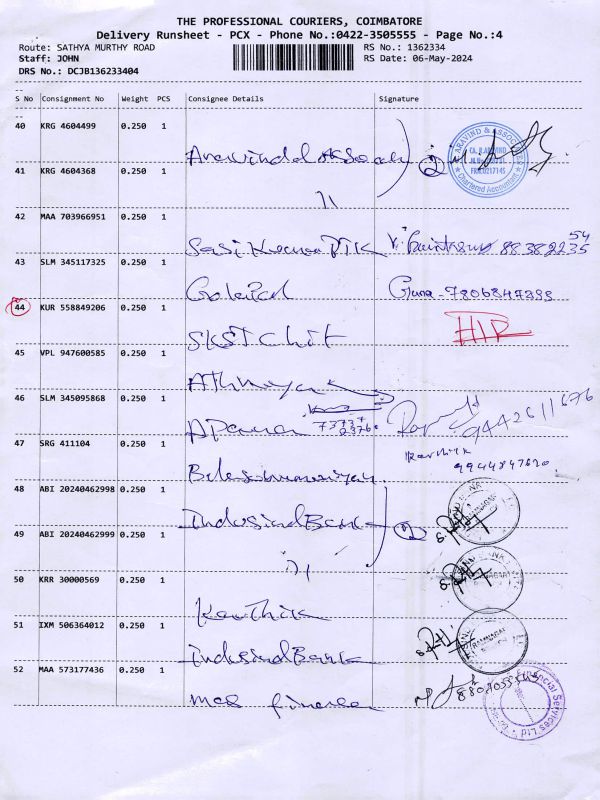 THE PROFESSIONAL COURIERS, COIMBATORE
Delivery Runsheet - PCX - Phone No.:0422-3505555 - Page No.:4
Route: SATHYA MURTHY ROAD RS No.: 1362334
Staff: JOHN RS Date: 06-May-2024
DRS No.: DCJB136233404
S No Consignment No Weight PCS Consignee Details Signature
40 KRG 4604499 0.250 1
ARAVIND & ASSOCIATES
CA. R.ARAVIND
Chartered Accountant
2
41 KRG 4604368 0.250 1
11
42 MAA 703966951 0.250 1
Sasi Kumar PTK
43 SLM 345117325 0.250 1
Guna - 7806847333
44 KUR 558849206 0.250 1
SKST Chit
45 VPL 947600585 0.250 1
Athmiya
46 SLM 345095868 0.250 1
9442611676
47 SRG 411104 0.250 1
Karthik
9944847620
48 ABI 20240462998 0.250 1
IndusindBank
2
49 ABI 20240462999 0.250 1
11
50 KRR 30000569 0.250 1
Karthik
51 IXM 506364012 0.250 1
IndusindBank
52 MAA 573177436 0.250 1
mas finance
Financial Services Ltd